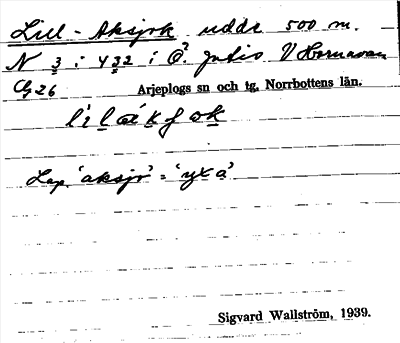 Lill-Aksjok udde 500 m.
N 3 i 432 i Ö. V Hornavan
Cg 26 Arjeplogs sn och tg. Norrbottens län.
Lap. 'aksjo' = 'yxa'
Sigvard Wallström, 1939.